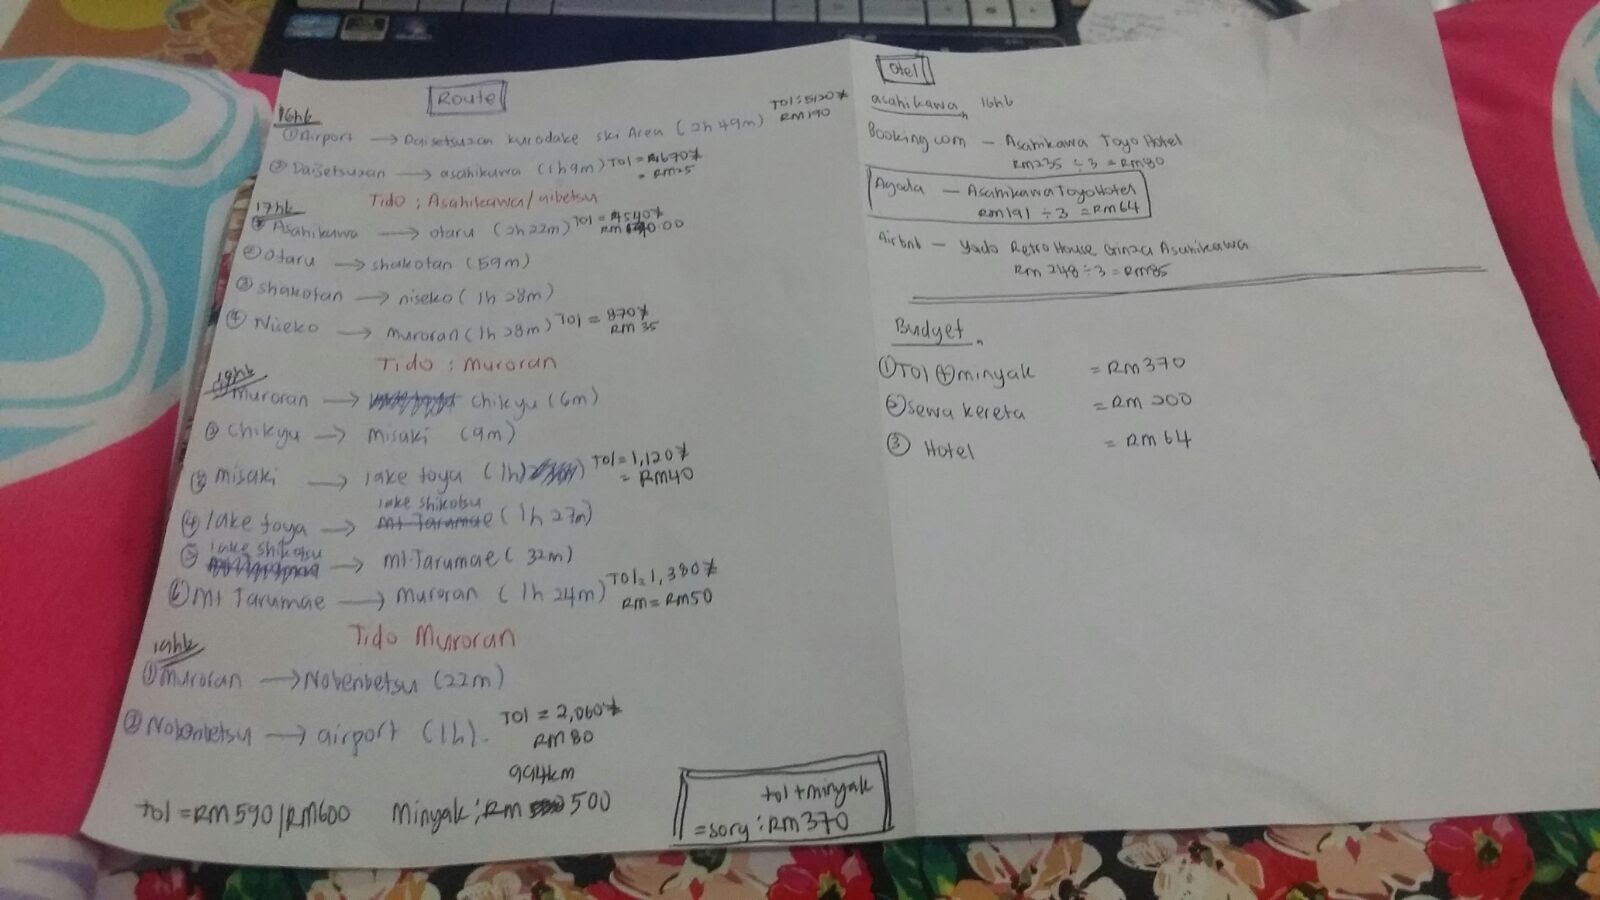 Route
16hb
① Airport → Daisetsuzan kurodake ski Area (2h 49m) Tol: 5120¥
RM190
② Daisetsuzan → asahikawa (1h 9m) Tol = 670¥
= RM25
Tido : Asahikawa/aibetsu
17hb
① Asahikawa → otaru (2h 22m) Tol = 4540¥
RM 170.00
② Otaru → shakotan (59m)
③ shakotan → niseko (1h 28m)
④ Niseko → muroran (1h 28m) Tol = 870¥
RM 35
Tido : Muroran
18hb
① Muroran → chikyu (6m)
② Chikyu → misaki (9m)
③ misaki → lake toya (1h) Tol = 1,120¥
= RM40
④ lake toya → lake shikotsu (1h 27m)
⑤ lake shikotsu → mt Tarumae (32m)
⑥ Mt Tarumae → muroran (1h 24m) Tol = 1,380¥
RM = RM50
Tido Muroran
19hb
① Muroran → Nobenbetsu (22m)
② Nobenbetsu → airport (1h). Tol = 2,060¥
RM 80
994km
tol = RM590/RM600 Minyak : RM 500
tol + minyak
= sorg : RM370
Otel
asahikawa 16hb
Booking.com – Asahikawa Toyo Hotel
RM235 ÷ 3 = RM80
Agoda – Asahikawa Toyo Hotel
RM191 ÷ 3 = RM64
Airbnb – Yado Retro House Ginza Asahikawa
RM 248 ÷ 3 = RM85
Budget
① Tol + minyak = RM370
② Sewa kereta = RM 200
③ Hotel = RM 64